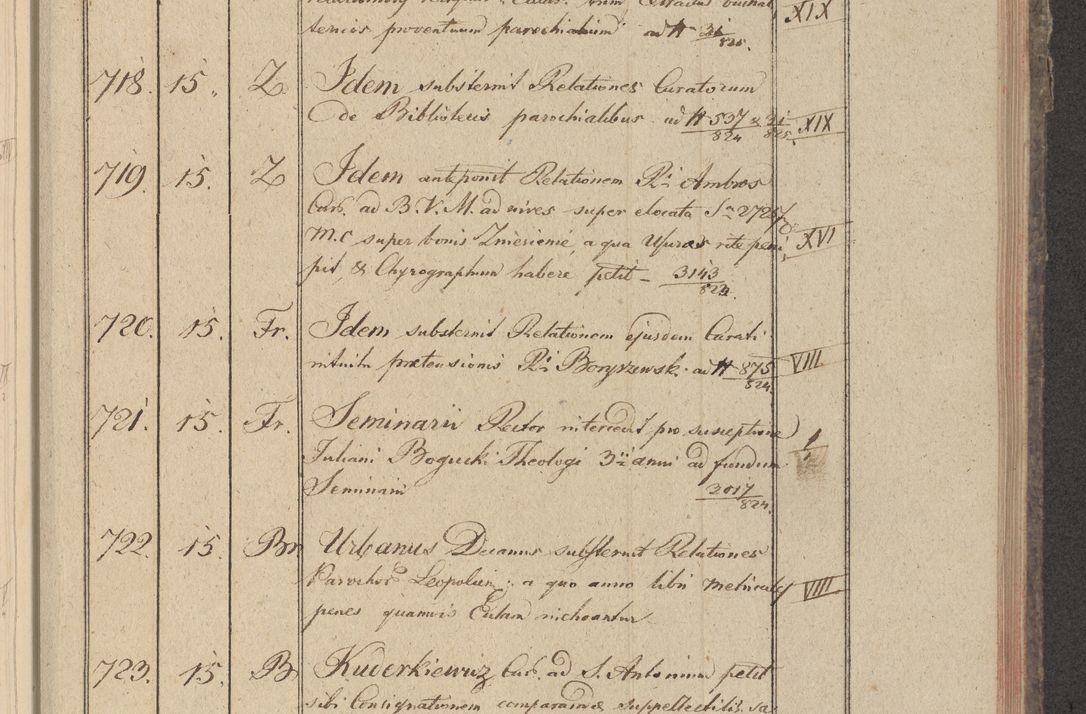 tencios proventuum parochialium ad N 31/825. XIX
718. 15. Z Idem substernit Relationes Curatorum
de Bibliotecis parochialibus ad N 537/824 & 31/825. XIX
719. 15. Z Idem anteponit Relationem Rdi Ambros
Cur. ad B. V. M. ad nives super elocata Sa 2725
m.c super bonis Zniesienie, a qua Usuras rite perci XVI
pit & Chyrographum habere petit – 3143/824.
720. 15. Fr. Idem substernit Relationem ejusdem Curati
intuitu prætensionis Rdi Boryszewsk. ad N 875/824. VIII
721. 15. Fr. Seminarii Rector intercedit pro susceptione
Juliani Bogucki Theologi 3ii anni ad fundum
Seminarii 3017/824.
722. 15. Br Urbanus Decanus substernit Relationes
Parochor Leopolien: a quo anno libri Metricales VIIII
penes quamvis Eccłam inchoantur
723. 15. Br Kuderkiewicz Cur. ad S. Antonium petit
sibi Consignationem comparandæ suppellectilis sa